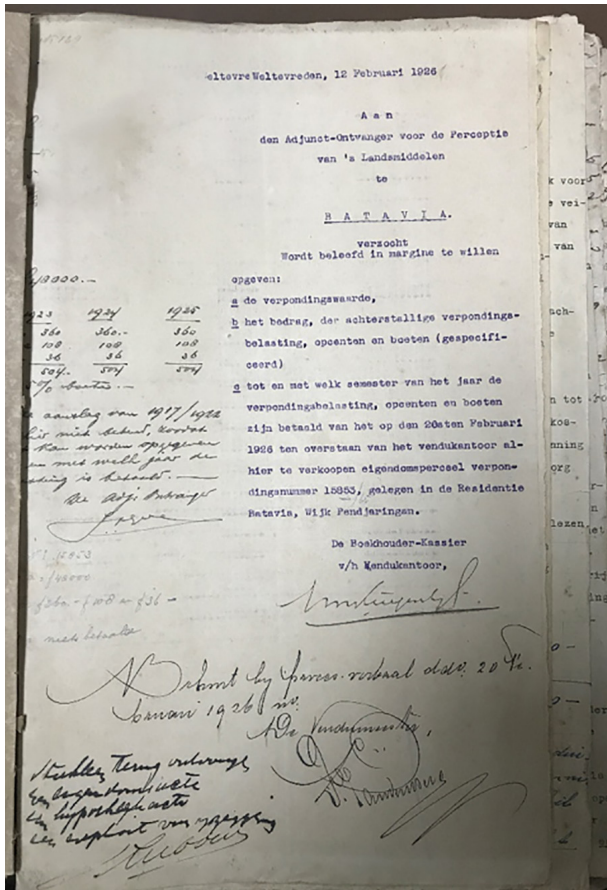 eltevreWeltevreden, 12 Februari 1926
A a n
den Adjunct-Ontvanger voor de Perceptie
van 's Landsmiddelen
te
B A T A V I A.
verzocht
Wordt beleefd in margine te willen
opgeven:
a de verpondingswaarde,
b het bedrag, der achterstallige verpondings-
belasting, opcenten en boeten (gespecifi-
ceerd)
c tot en met welk semester van het jaar de
verpondingsbelasting, opcenten en boeten
zijn betaald van het op den 20sten Februari
1926 ten overstaan van het vendukantoor al-
hier te verkoopen eigendomsperceel verpon-
dingsnummer 15853, gelegen in de Residentie
Batavia, Wijk Pendjaringan.
De Boekhouder-Kassier
v/h Vendukantoor,
1923 1924 1925
360 360.- 360
108 108 108
36 36 36
504. 504 504
% boete.—
aanslag van 1917/1922
niet bekend, zoodat
kan worden opgegeven
en met welk jaar de
is betaald.—
De Adj. Ontvanger
15853
niet betaald
behoort bij proces-verbaal ddo. 20 Fe-
bruari 1926 no.
De Vendumeester,
Stukken terug ontvangen
een eigendomsacte
een hypotheekacte
een exploit van
k voor
e vei-
van
van
ach-
n tot
kos-
nning
org
lezen